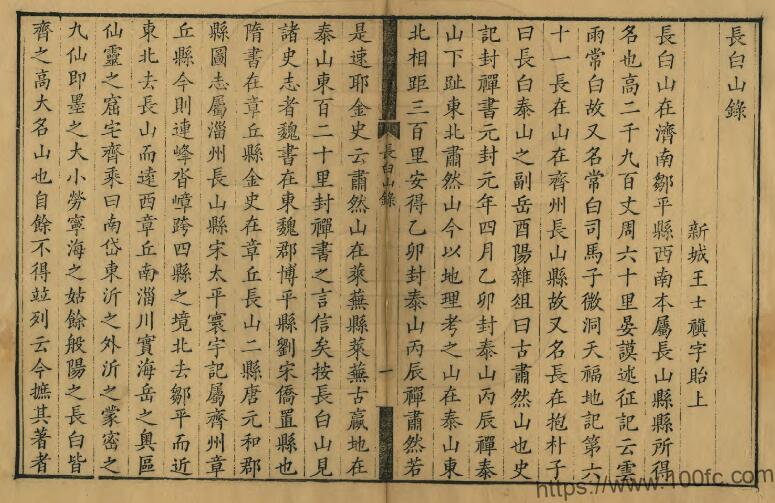 長白山錄
新城王士禛字貽上
長白山在濟南鄒平縣西南本屬長山縣縣所得
名也高二千九百丈周六十里晏謨述征記云雲
雨常白故又名常白司馬子微洞天福地記第六
十一長在山在齊州長山縣故又名長在抱朴子
曰長白泰山之副岳酉陽雜俎曰古肅然山也史
記封禪書元封元年四月乙卯封泰山丙辰禪泰
山下趾東北肅然山今以地理考之山在泰山東
北相距三百里安得乙卯封泰山丙辰禪肅然若
長白山錄
一
是速耶金史云肅然山在萊蕪縣萊蕪古嬴地在
泰山東百二十里封禪書之言信矣按長白山見
諸史志者魏書在東魏郡博平縣劉宋僑置縣也
隋書在章丘縣金史在章丘長山二縣唐元和郡
縣圖志屬淄州長山縣宋太平寰宇記屬齊州章
丘縣今則連峰沓嶂跨四縣之境北去鄒平而近
東北去長山而遠西章丘南淄川實海岳之奧區
仙靈之窟宅齊乘曰南岱東沂之外沂之蒙密之
九仙即墨之大小勞寧海之姑餘般陽之長白皆
齊之高大名山也自餘不得竝列云今摭其著者
https://www.100fc.com